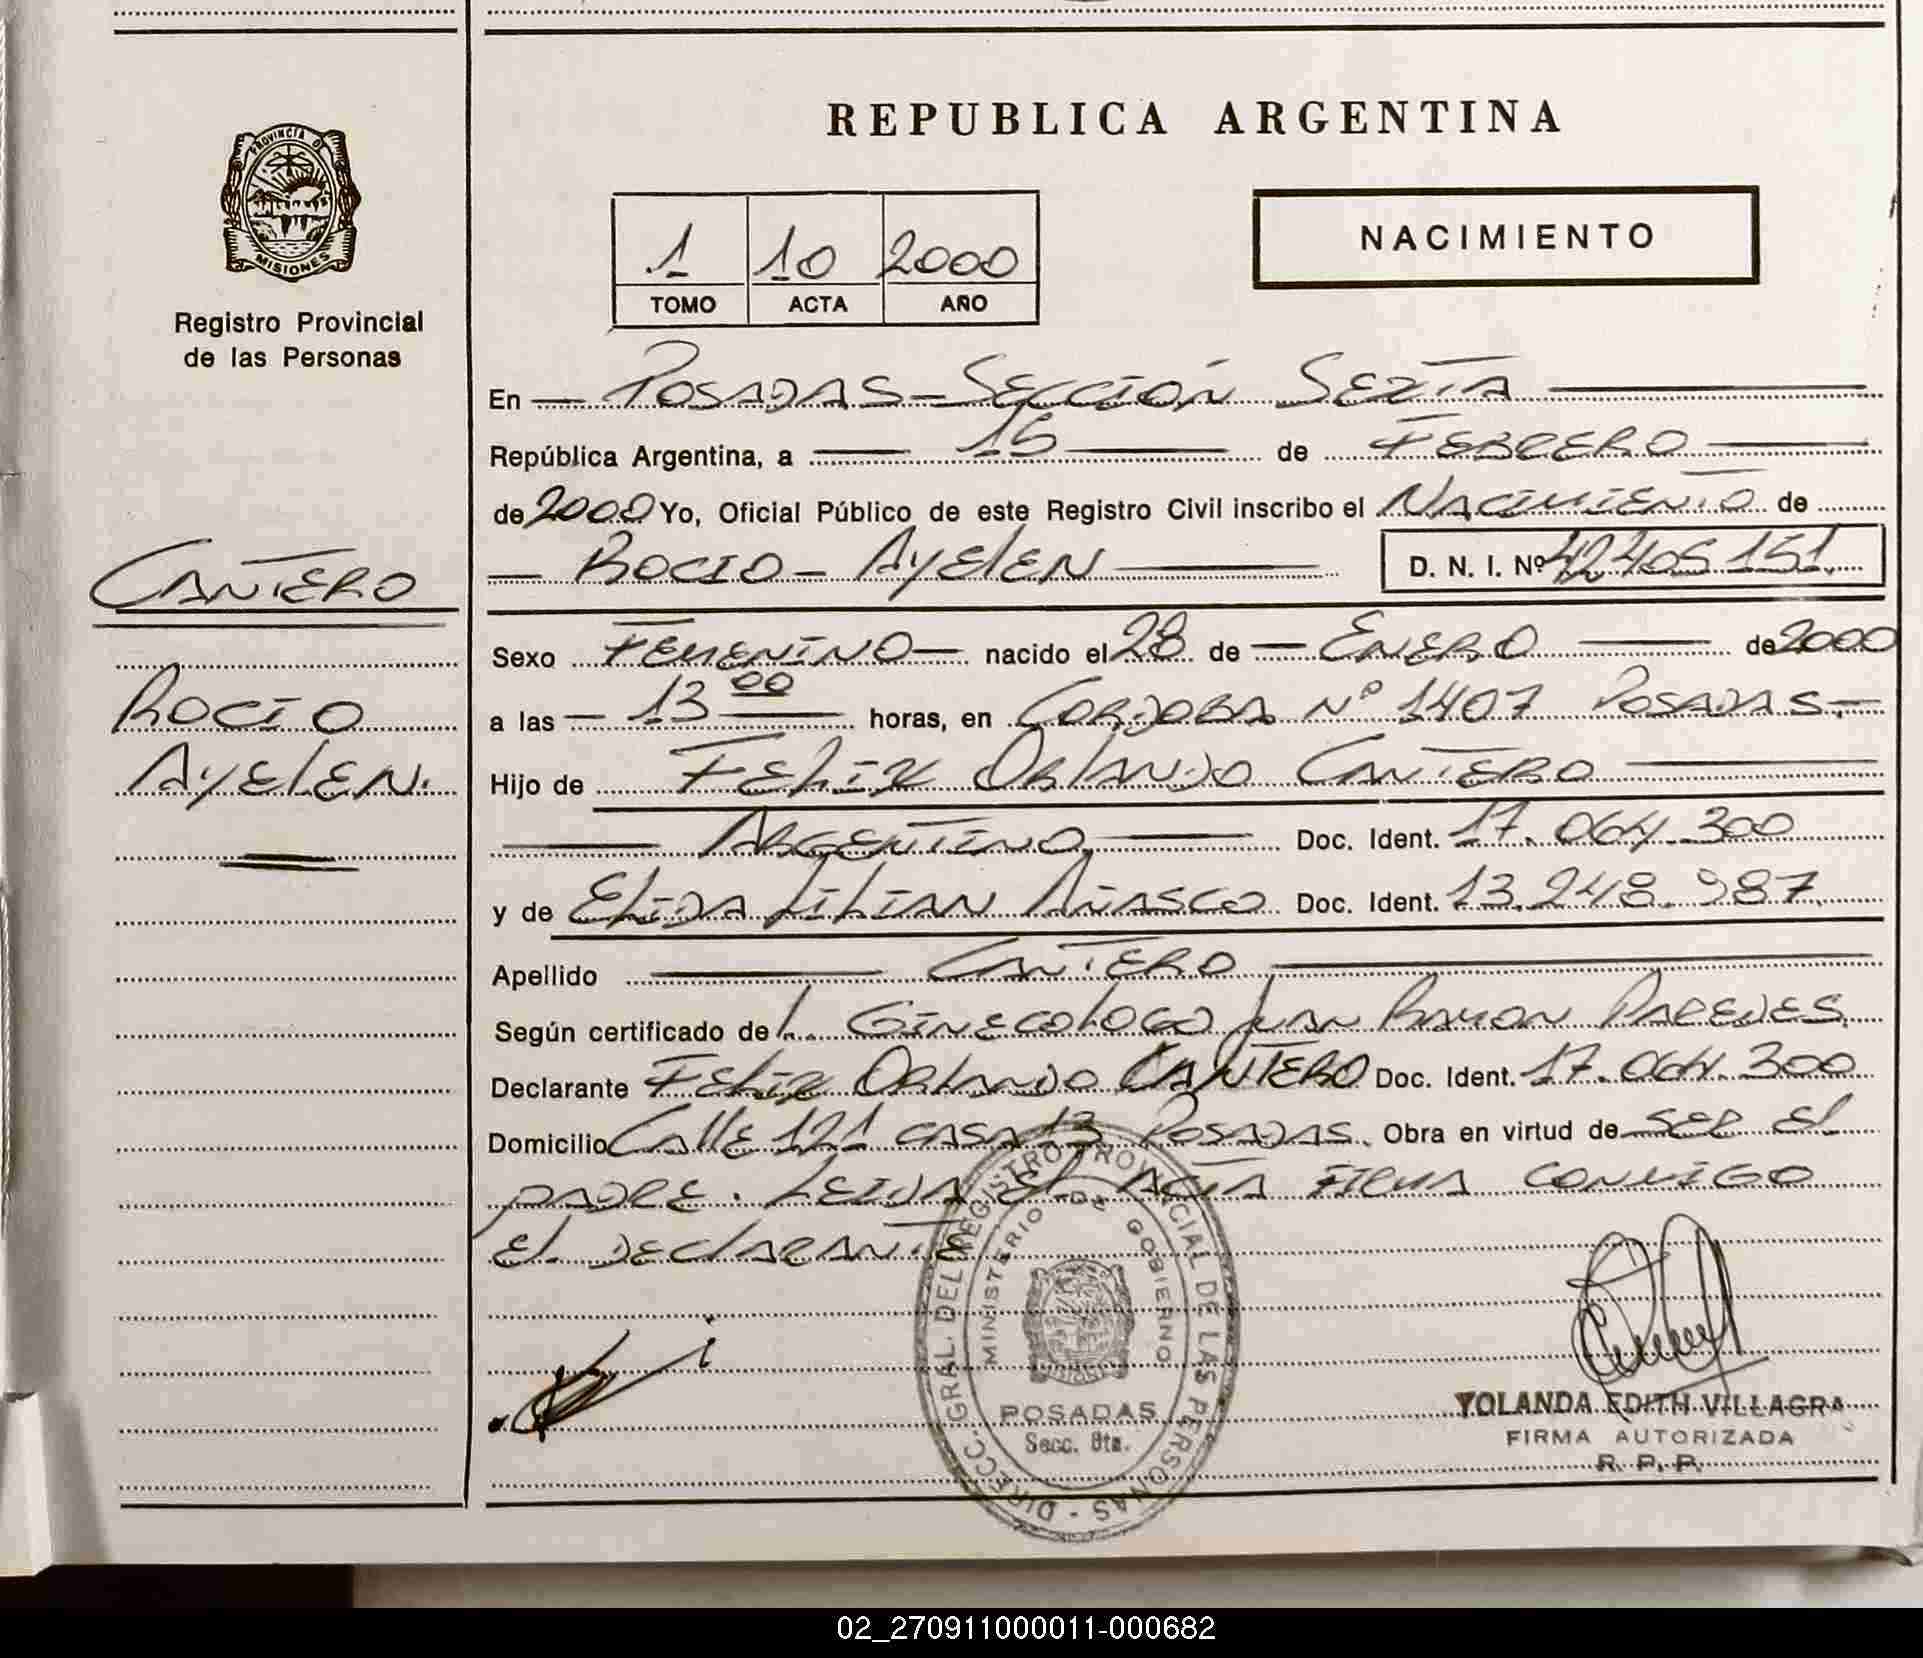 REPUBLICA ARGENTINA
PROVINCIA DE
MISIONES
Registro Provincial
de las Personas
1 10 2000
TOMO ACTA AÑO
NACIMIENTO
En POSADAS - SECCIÓN SEXTA
República Argentina, a 15 de FEBRERO
de 2000 Yo, Oficial Público de este Registro Civil inscribo el NACIMIENTO de
ROCIO - AYELEN D. N. I. Nº 42405151.
CANTERO
ROCIO
AYELEN.
Sexo FEMENINO nacido el 28 de ENERO de 2000
a las 13 00 horas, en CORDOBA Nº 1407 POSADAS.-
Hijo de FELIX ORLANDO CANTERO
ARGENTINO Doc. Ident. 17.064.300
y de ELIDA LILIAN AÑASCO Doc. Ident. 13.248.987.
Apellido CANTERO
Según certificado del GINECOLOGO JUAN RAMON PAREDES
Declarante FELIX ORLANDO CANTERO Doc. Ident. 17.064.300
Domicilio CALLE 121 CASA 13 POSADAS. Obra en virtud de SER EL
PADRE. LEIDA EL ACTA FIRMA CONMIGO
EL DECLARANTE.
DIRECC. GRAL. DEL REGISTRO PROVINCIAL DE LAS PERSONAS -
MINISTERIO DE GOBIERNO
POSADAS
Secc. 6ta.
YOLANDA EDITH VILLAGRA
FIRMA AUTORIZADA
R. P. P.
02_270911000011-000682